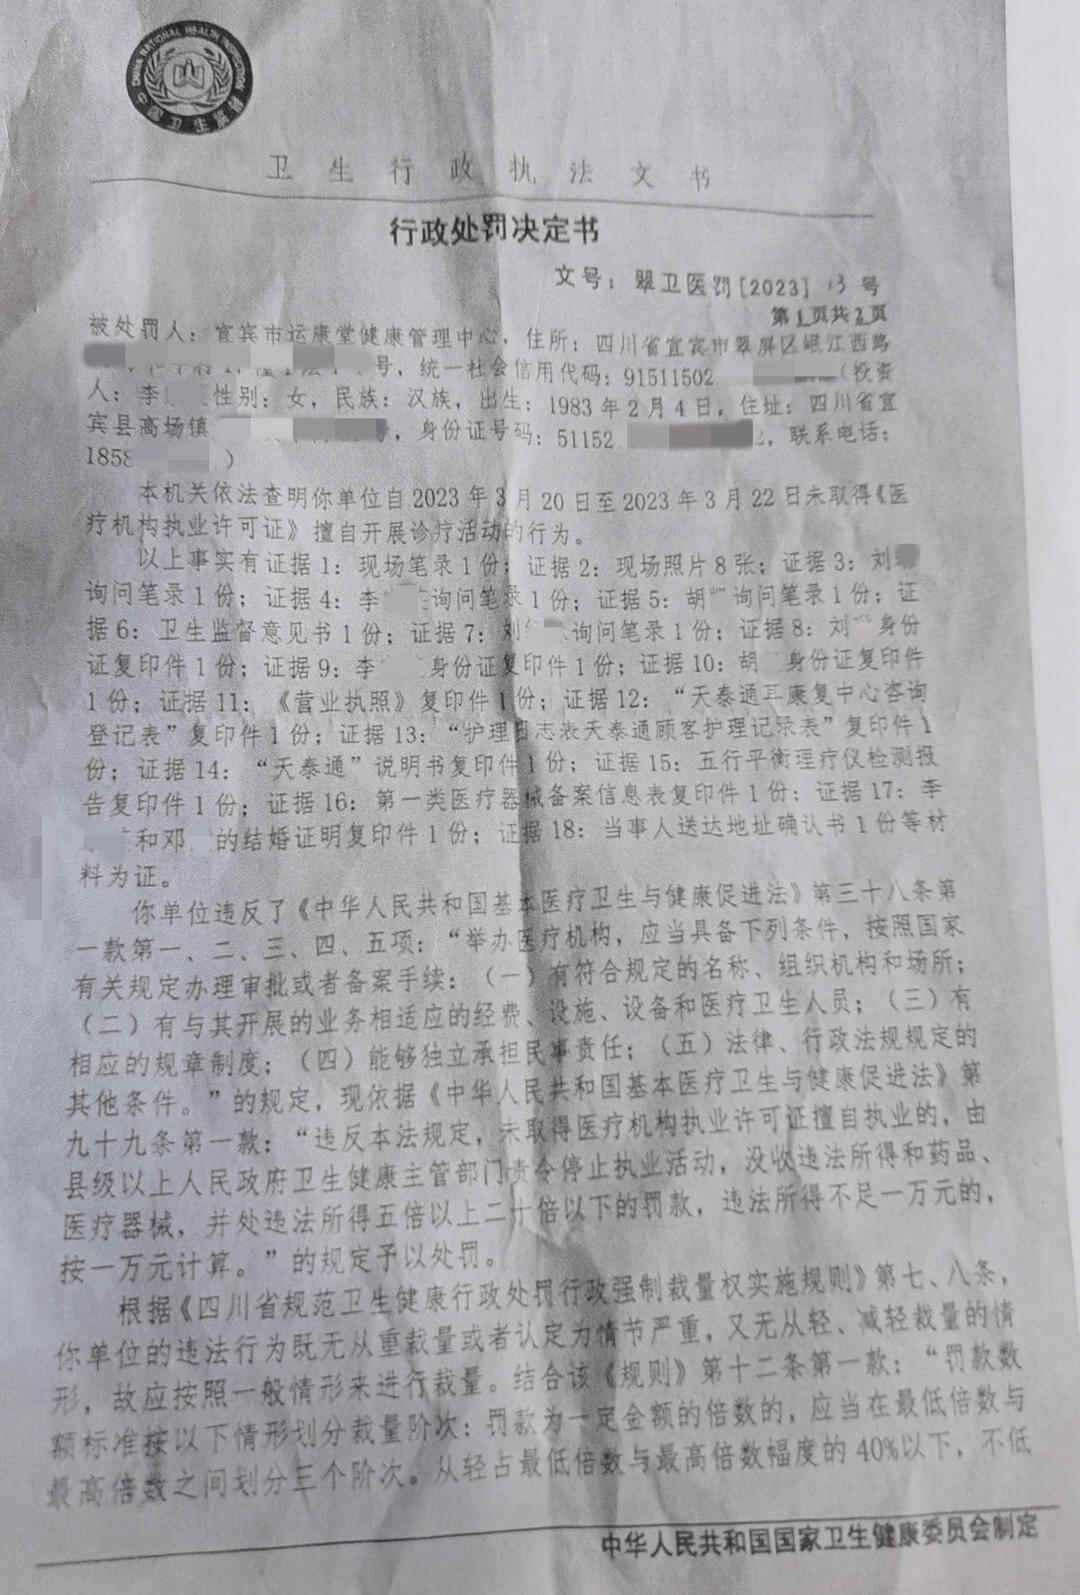 CHINA NATIONAL HEALTH INSPECTION
中国卫生监督
卫生行政执法文书
行政处罚决定书
文号：翠卫医罚[2023] 号
第1页共2页
被处罚人：宜宾市运康堂健康管理中心，住所：四川省宜宾市翠屏区岷江西路
号，统一社会信用代码：91511502 （投资
人：李 性别：女，民族：汉族，出生：1983年2月4日，住址：四川省宜
宾县高场镇 号，身份证号码：51152 ，联系电话：
1858 ）
本机关依法查明你单位自2023年3月20日至2023年3月22日未取得《医
疗机构执业许可证》擅自开展诊疗活动的行为。
以上事实有证据1：现场笔录1份；证据2：现场照片8张；证据3：刘
询问笔录1份；证据4：李 询问笔录1份；证据5：胡 询问笔录1份；证
据6：卫生监督意见书1份；证据7：刘 询问笔录1份；证据8：刘 身份
证复印件1份；证据9：李 身份证复印件1份；证据10：胡 身份证复印件
1份；证据11：《营业执照》复印件1份；证据12：“天泰通耳康复中心咨询
登记表”复印件1份；证据13：“护理日志表天泰通顾客护理记录表”复印件1
份；证据14：“天泰通”说明书复印件1份；证据15：五行平衡理疗仪检测报
告复印件1份；证据16：第一类医疗器械备案信息表复印件1份；证据17：李
和邓 的结婚证明复印件1份；证据18：当事人送达地址确认书1份等材
料为证。
你单位违反了《中华人民共和国基本医疗卫生与健康促进法》第三十八条第
一款第一、二、三、四、五项：“举办医疗机构，应当具备下列条件，按照国家
有关规定办理审批或者备案手续：（一）有符合规定的名称、组织机构和场所；
（二）有与其开展的业务相适应的经费、设施、设备和医疗卫生人员；（三）有
相应的规章制度；（四）能够独立承担民事责任；（五）法律、行政法规规定的
其他条件。”的规定，现依据《中华人民共和国基本医疗卫生与健康促进法》第
九十九条第一款：“违反本法规定，未取得医疗机构执业许可证擅自执业的，由
县级以上人民政府卫生健康主管部门责令停止执业活动，没收违法所得和药品、
医疗器械，并处违法所得五倍以上二十倍以下的罚款，违法所得不足一万元的，
按一万元计算。”的规定予以处罚。
根据《四川省规范卫生健康行政处罚行政强制裁量权实施规则》第七、八条，
你单位的违法行为既无从重裁量或者认定为情节严重，又无从轻、减轻裁量的情
形，故应按照一般情形来进行裁量。结合该《规则》第十二条第一款：“罚款数
额标准按以下情形划分裁量阶次：罚款为一定金额的倍数的，应当在最低倍数与
最高倍数之间划分三个阶次。从轻占最低倍数与最高倍数幅度的40%以下，不低
中华人民共和国国家卫生健康委员会制定